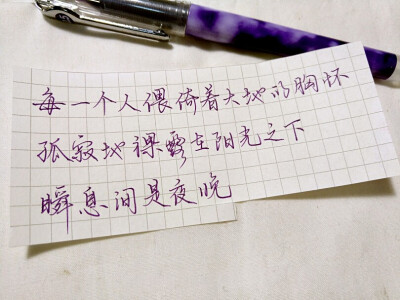 每一个人偎倚着大地的胸怀
孤寂地裸露在阳光之下
瞬息间是夜晚